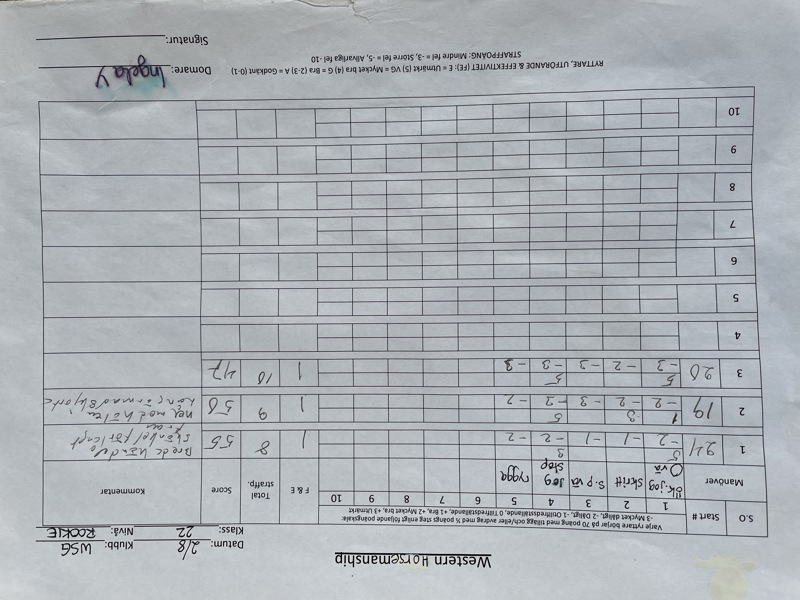 Western Horsemanship
Datum: 2/8 Klubb: WSG
Klass: 22 Nivå: ROOKIE
Varje ryttare börjar på 70 poäng med tillägg och/eller avdrag med ½ poängs steg enligt följande poängskala:
-3 Mycket dåligt, -2 Dåligt, -1 Otillfredsställande, 0 Tillfredsställande, +1 Bra, +2 Mycket bra, +3 Utmärkt
S.O Start # 1 2 3 4 5 6 7 8 9 10 F & E Total. straffp. Score Kommentar
Manöver ök.jog O vä skritt S.p vä jog stop rygga
5 3
1 24 -2 -1 -1 -2 -2 1 8 55 Breda händer
skänkel för långt
fram
1 3 5
2 19 -2 -2 -3 -3 -2 1 9 50 ner med hälen
5 5
3 20 -3 -2 -3 -3 -3 1 10 47
4
5
6
7
8
9
10
RYTTARE, UTFÖRANDE & EFFEKTIVITET (FE): E = Utmärkt (5) VG = Mycket bra (4) G = Bra (2-3) A = Godkänt (0-1)
STRAFFPOÄNG: Mindre fel = -3, Större fel = -5, Allvarliga fel -10
Domare: Ingela Y
Signatur: